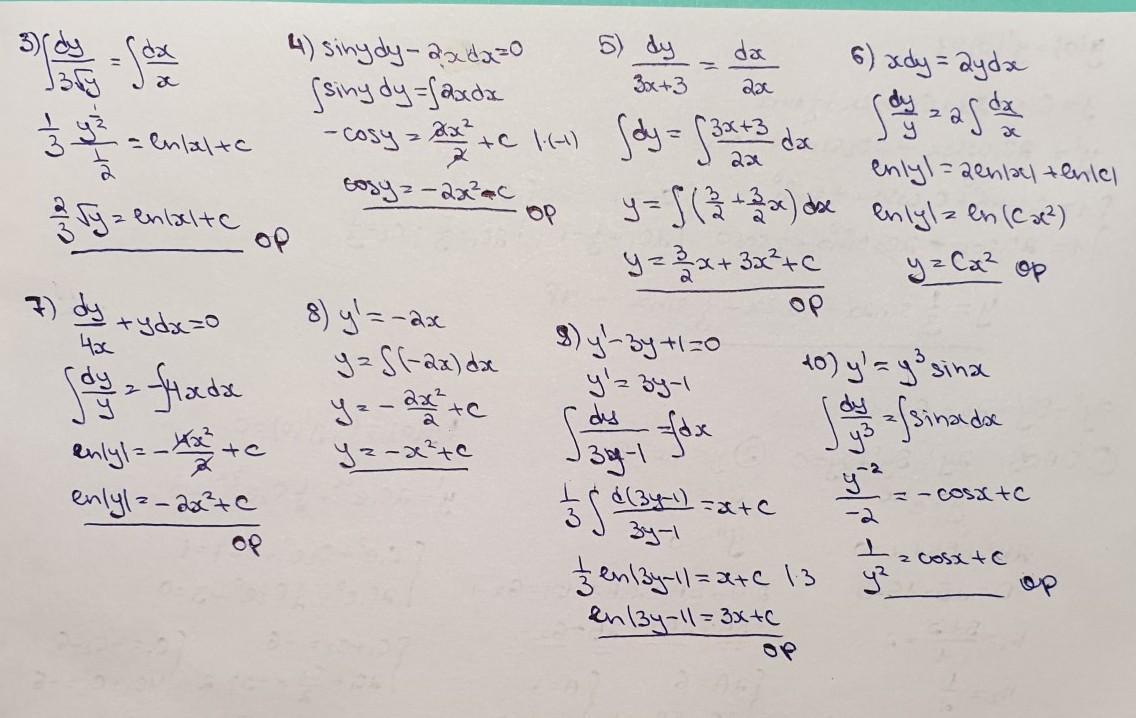 3) ∫ dy/3√y = ∫ dx/x
1/3 y^(1/2)/(1/2) = ln|x| + c
2/3 √y = ln|x| + c
OP
4) siny dy - 2x dx = 0
∫ siny dy = ∫ 2x dx
-cosy = 2x²/2 + c |·(-1)
cosy = -2x² - c
OP
5) dy/(3x+3) = dx/2x
∫ dy = ∫ (3x+3)/2x dx
y = ∫ (3/2 + 3/2 x) dx
y = 3/2 x + 3x² + c
OP
6) x dy = 2y dx
∫ dy/y = 2 ∫ dx/x
ln|y| = 2ln|x| + ln|c|
ln|y| = ln(Cx²)
y = Cx² OP
7) dy/4x + y dx = 0
∫ dy/y = -∫ 4x dx
ln|y| = - 4x²/2 + c
ln|y| = -2x² + c
OP
8) y' = -2x
y = ∫ (-2x) dx
y = - 2x²/2 + c
y = -x² + c
9) y' - 3y + 1 = 0
y' = 3y - 1
∫ dy/(3y-1) = ∫ dx
1/3 ∫ d(3y-1)/(3y-1) = x + c
1/3 ln|3y-1| = x + c |·3
ln|3y-1| = 3x + c
OP
10) y' = y³ sinx
∫ dy/y³ = ∫ sinx dx
y^(-2)/-2 = -cosx + c
1/y² = cosx + c
OP